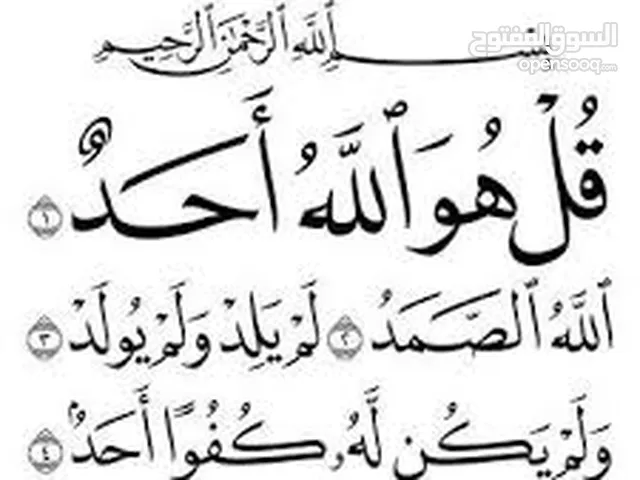 بِسْمِ ٱللَّهِ ٱلرَّحْمَٰنِ ٱلرَّحِيمِ
السوق المفتوح
opensooq.com
قُلْ هُوَ ٱللَّهُ أَحَدٌ ١
ٱللَّهُ ٱلصَّمَدُ ٢ لَمْ يَلِدْ وَلَمْ يُولَدْ ٣
وَلَمْ يَكُن لَّهُۥ كُفُوًا أَحَدٌۢ ٤